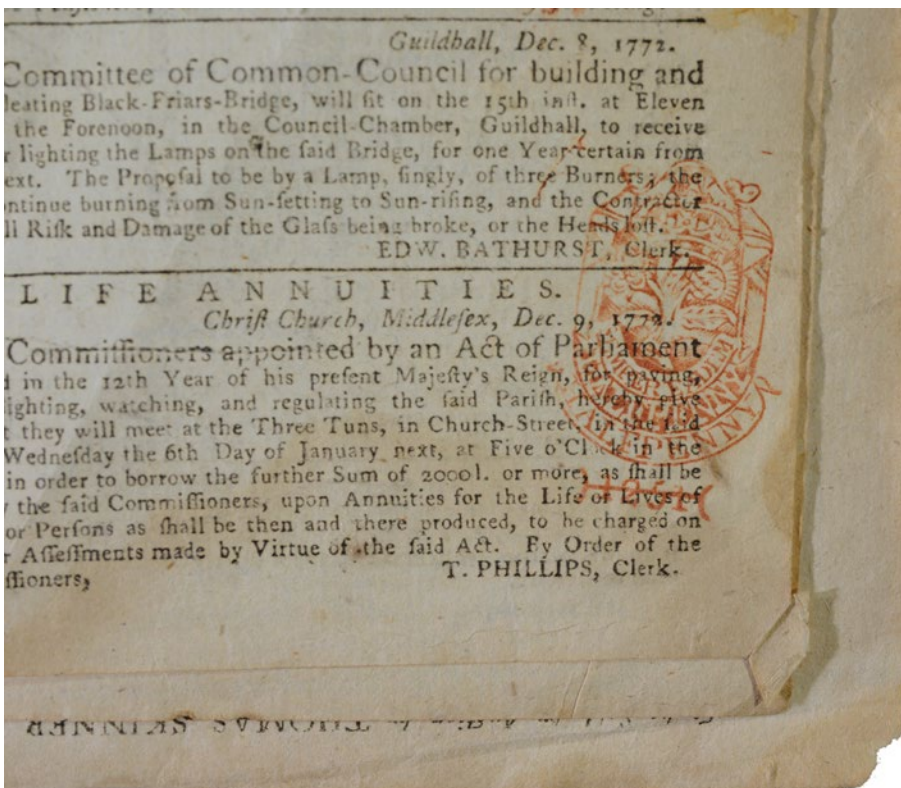 Guildhall, Dec. 8, 1772.
Committee of Common-Council for building and
leating Black-Friars-Bridge, will ſit on the 15th inſt. at Eleven
the Forenoon, in the Council-Chamber, Guildhall, to receive
r lighting the Lamps on the ſaid Bridge, for one Year certain from
ext. The Propoſal to be by a Lamp, ſingly, of three Burners; the
ontinue burning from Sun-ſetting to Sun-riſing, and the Contractor
ll Riſk and Damage of the Glaſs being broke, or the Heads loſt.
EDW. BATHURST, Clerk.
LIFE ANNUITIES.
Chriſt Church, Middleſex, Dec. 9, 1772.
Commiſſioners appointed by an Act of Parliament
d in the 12th Year of his preſent Majeſty's Reign, for paving,
ighting, watching, and regulating the ſaid Pariſh, hereby give
t they will meet at the Three Tuns, in Church-Street, in the ſaid
Wedneſday the 6th Day of January next, at Five o'Clock in the
in order to borrow the further Sum of 2000l. or more, as ſhall be
y the ſaid Commiſſioners, upon Annuities for the Life or Lives of
or Perſons as ſhall be then and there produced, to be charged on
r Aſſeſſments made by Virtue of the ſaid Act. By Order of the
ſſioners,
T. PHILLIPS, Clerk.
PENNY
THOMAS SKINNER